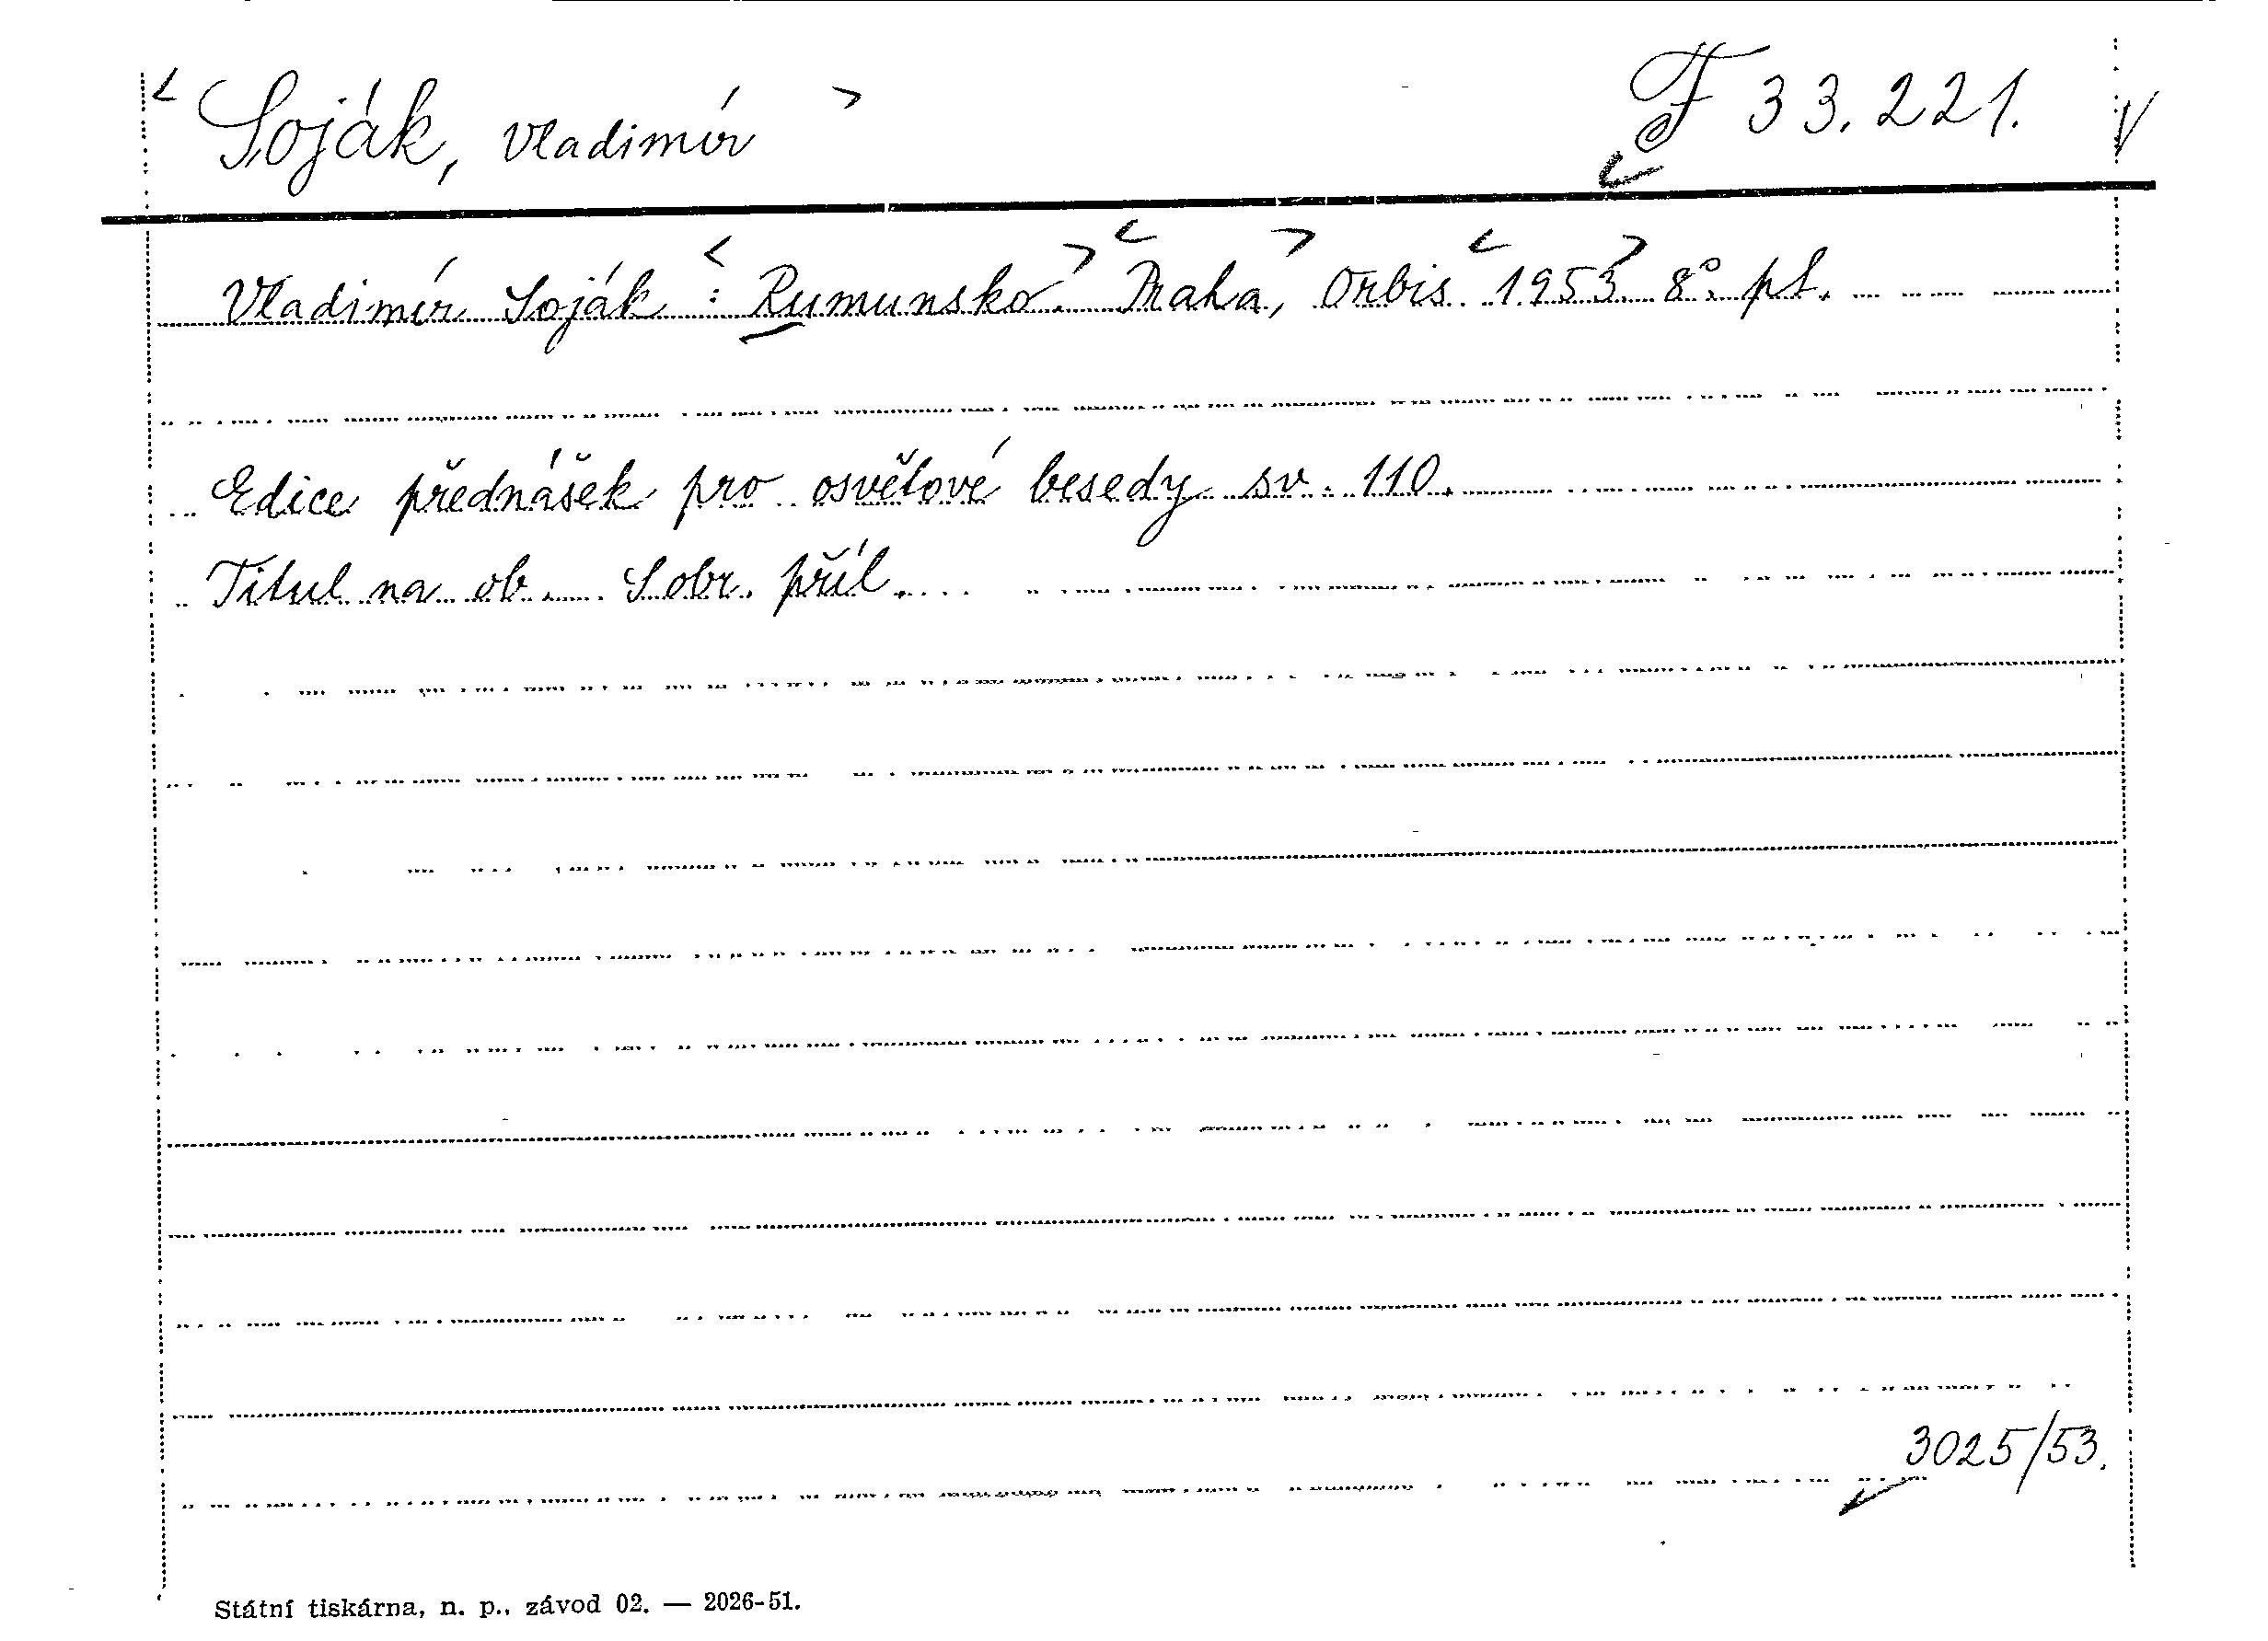 Soják, Vladimír F 33.221.
Vladimír Soják : Rumunsko. Praha, Orbis 1953. 8°. pt.
Edice přednášek pro osvětové besedy sv. 110.
Titul na ob. S obr. příl.
3025/53.
Státní tiskárna, n. p., závod 02. — 2026-51.